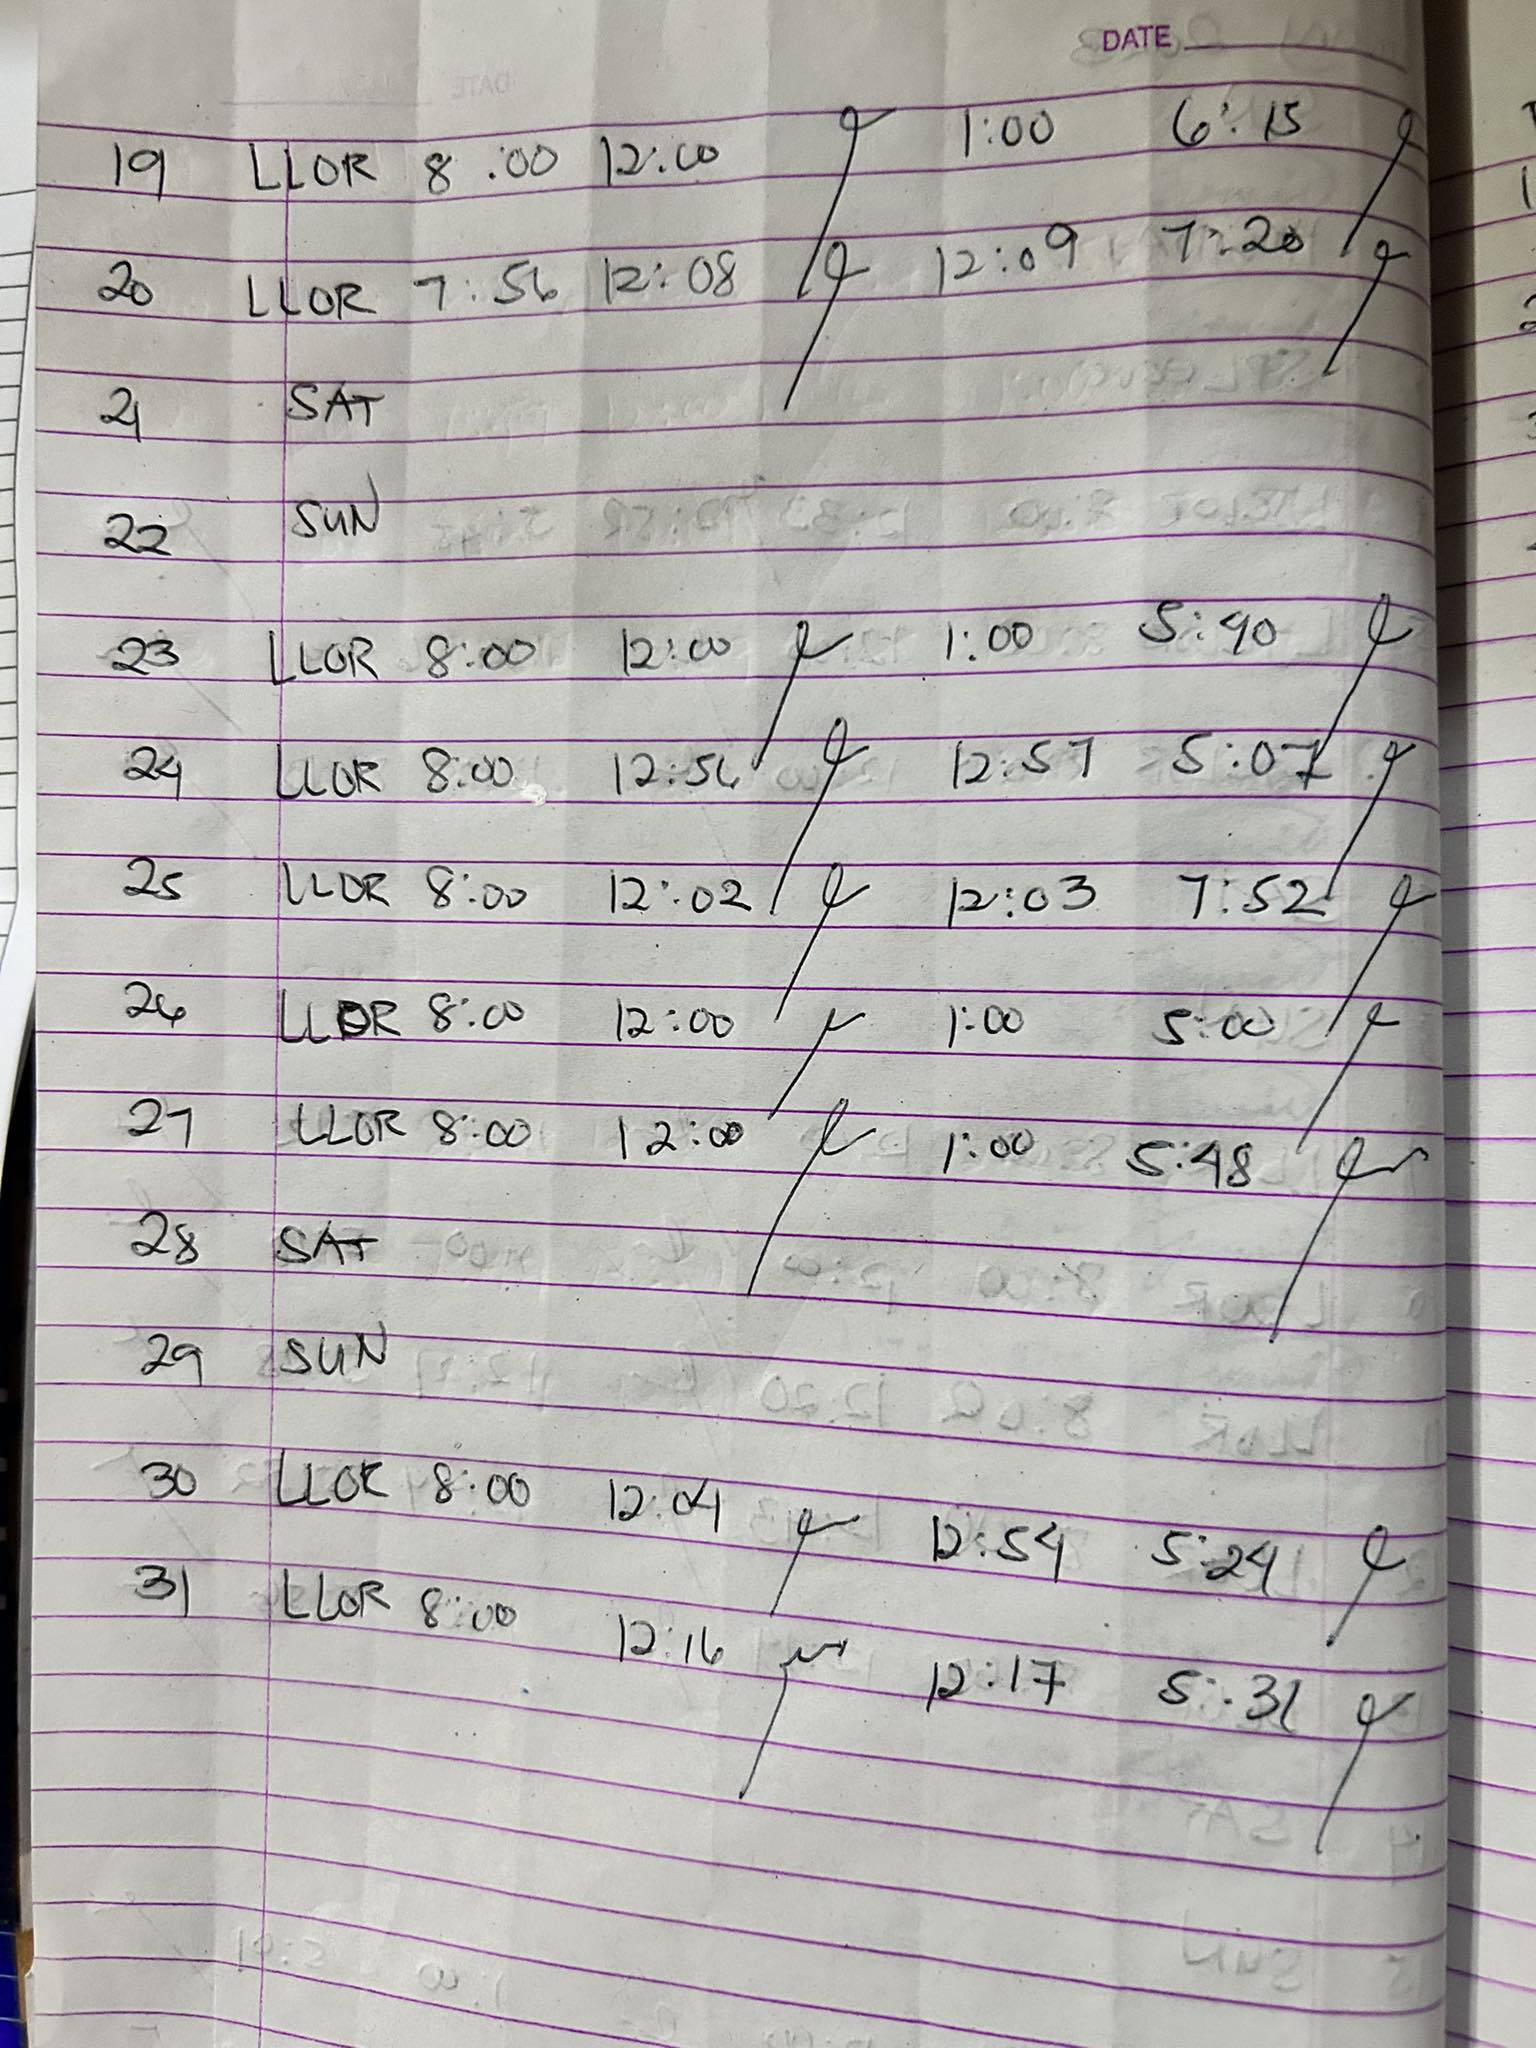 DATE
19 LLOR 8:00 12:00 1:00 6:15
20 LLOR 7:56 12:08 12:09 7:20
21 SAT
22 SUN
23 LLOR 8:00 12:00 1:00 5:40
24 LLOR 8:00 12:56 12:57 5:07
25 LLOR 8:00 12:02 12:03 7:52
26 LLOR 8:00 12:00 1:00 5:00
27 LLOR 8:00 12:00 1:00 5:48
28 SAT
29 SUN
30 LLOR 8:00 12:04 12:54 5:24
31 LLOR 8:00 12:16 12:17 5:31